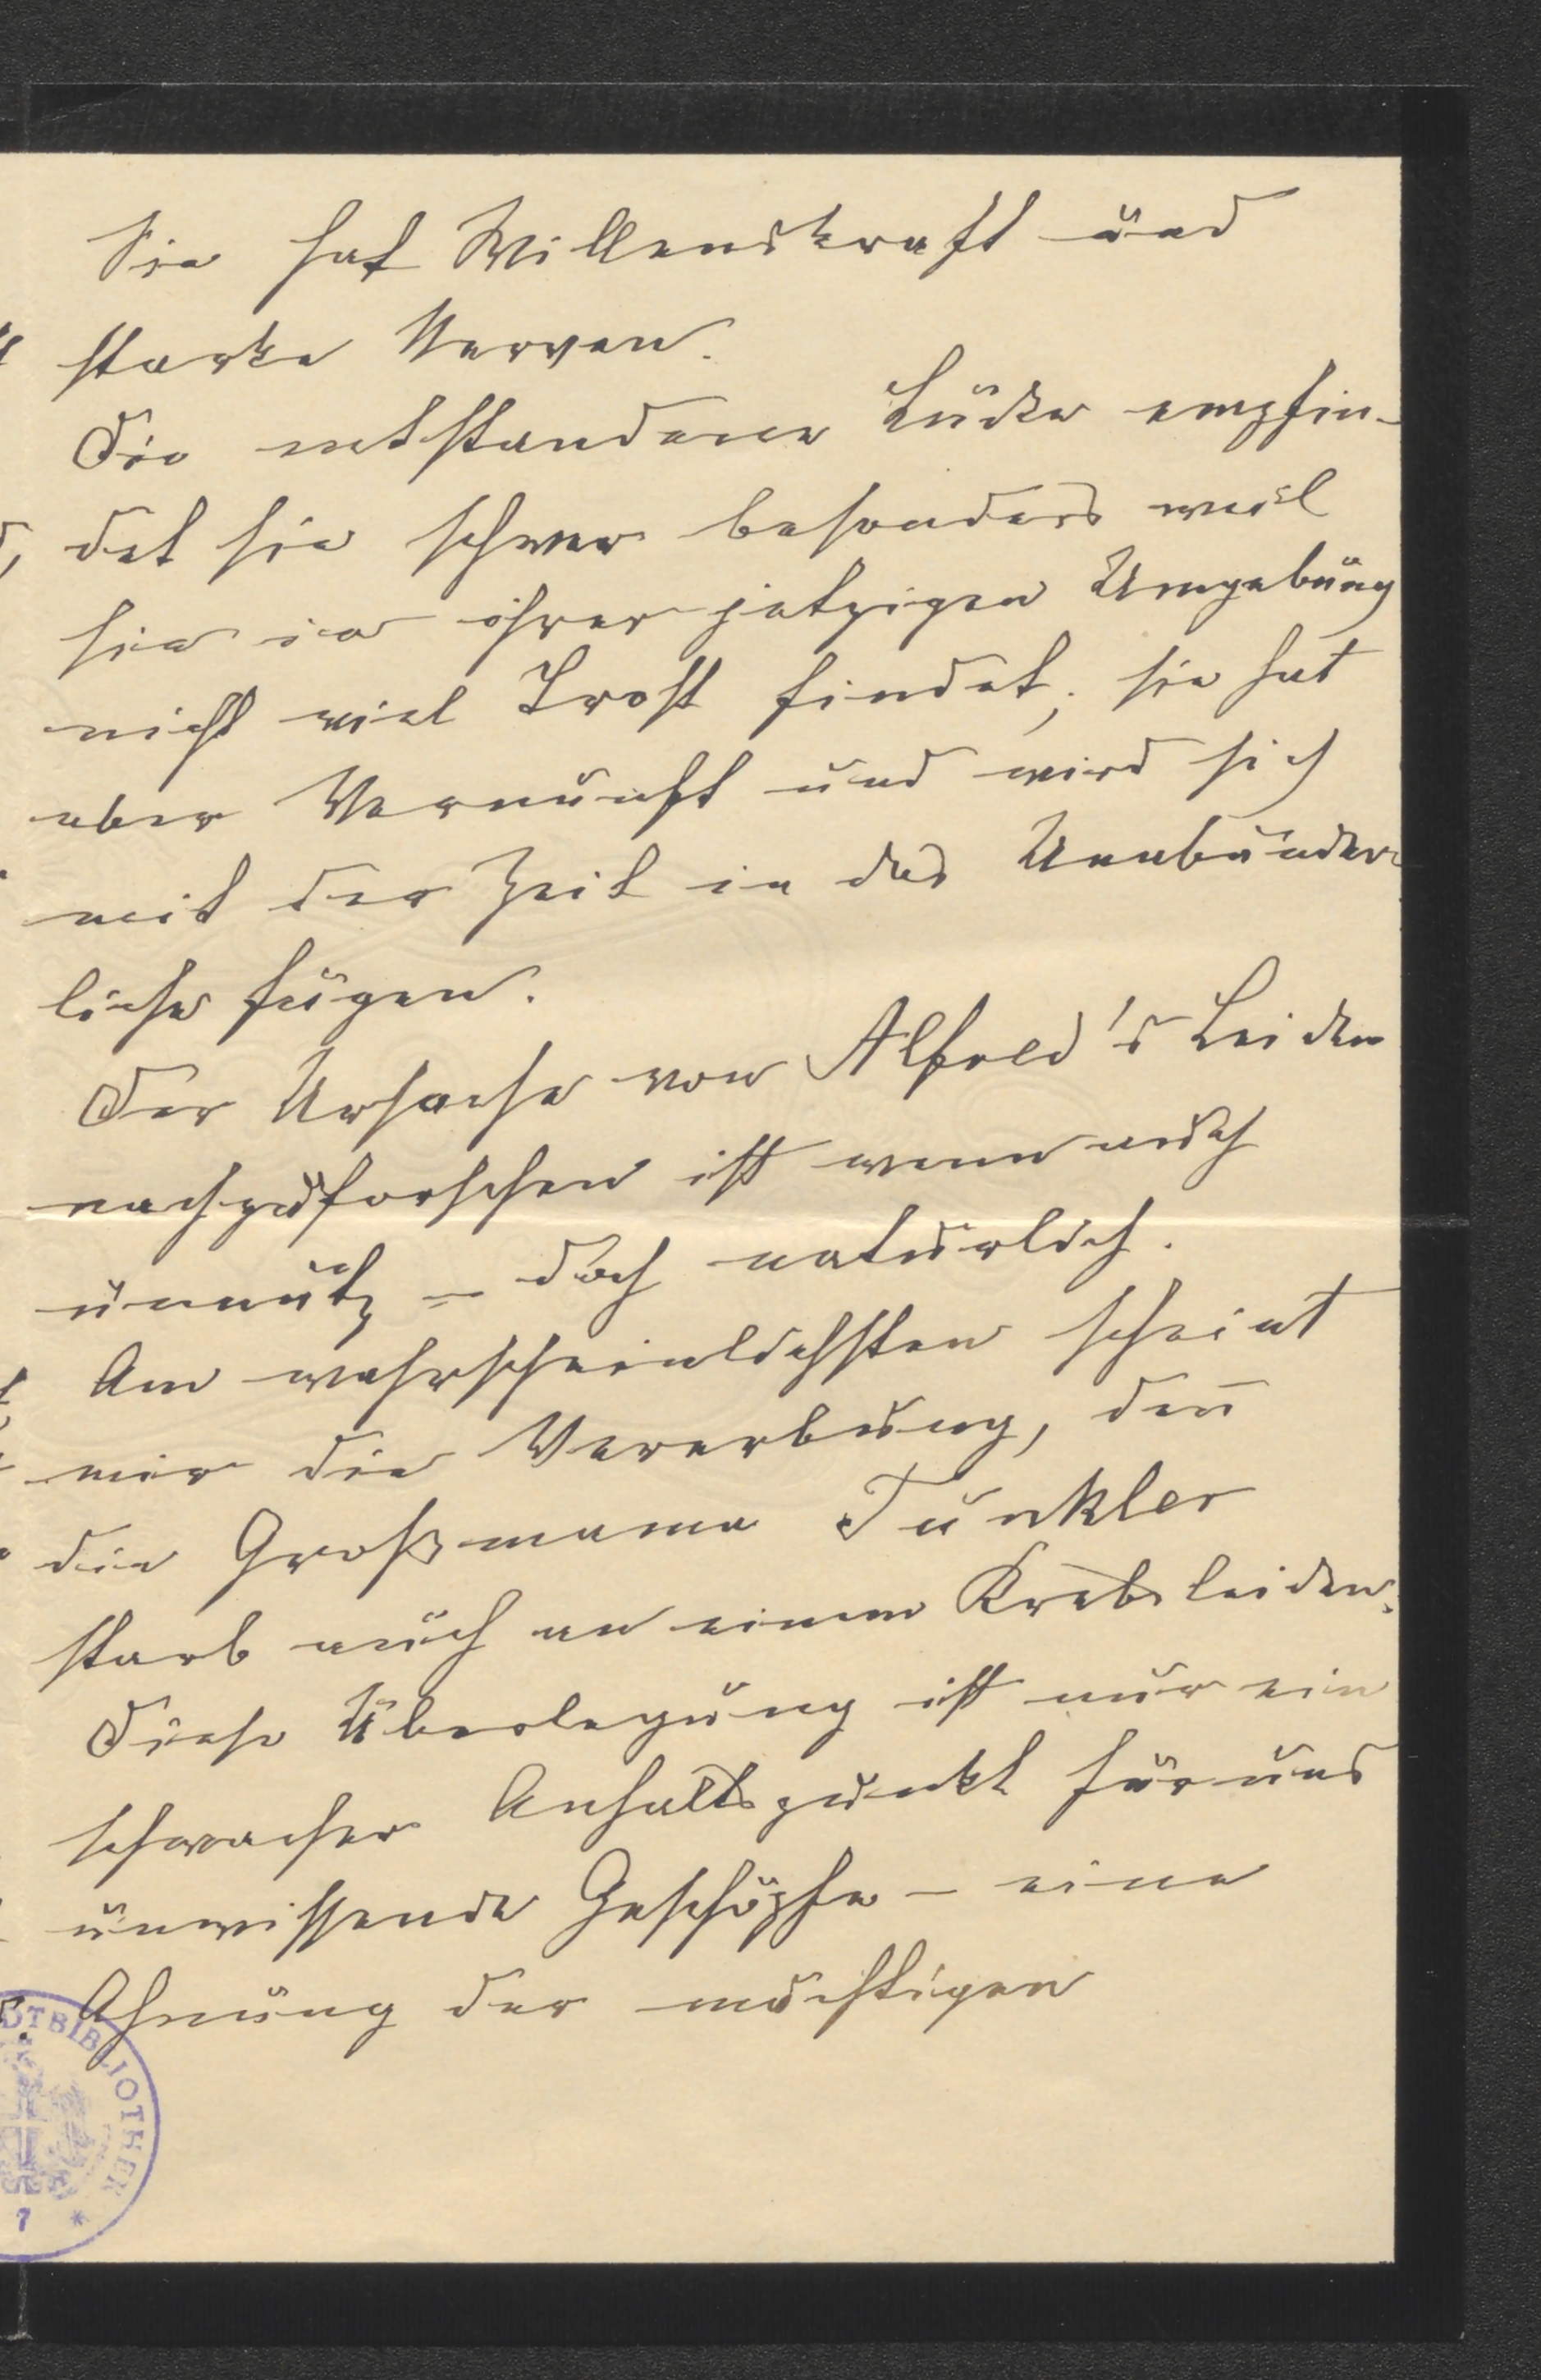 Sie hat Willenskraft und
starke Nerven.
Die entstandene Lücke empfin-
det sie schwer besonders weil
sie in ihrer jetzigen Umgebung
nicht viel Trost findet; sie hat
aber Vernunft und wird sich
mit der Zeit in das Unabänder-
liche fügen.
Der Ursache von Alfred's Leiden
nachzuforschen ist wenn auch
unnütz – doch natürlich.
Am wahrscheinlichsten scheint
mir die Vererbung, den̄
die Großmama Tunkler
starb auch an einem Krebsleiden.
Diese Überlegung ist nur ein
schwacher Anhaltspunkt für uns
unwissende Geschöpfe – eine
Ahnung der mächtigen
DTBIBLIOTHEK *
7